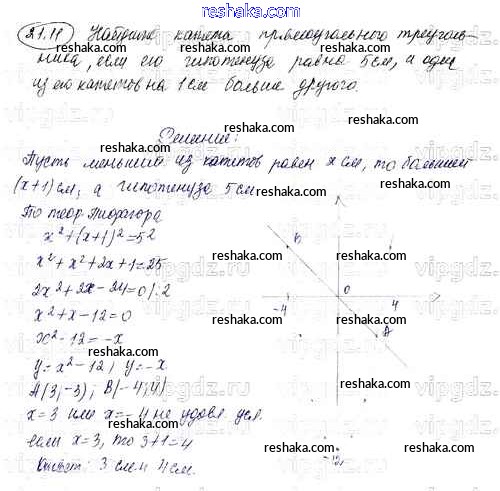 www.reshaka.com
21.11 Найдите катета прямоугольного треуголь-
ника, если его гипотенуза равна 5 см, а один
из его катетов на 1 см больше другого.
Решение:
Пусть меньший из катетов равен x см, то больший
(x+1) см, а гипотенуза 5 см
По теор Пифагора
x²+(x+1)²=5²
x²+x²+2x+1=25
2x²+2x-24=0/:2
x²+x-12=0
x²-12=-x
y=x²-12, y=-x
A(3;-3); B(-4;4)
x=3 или x=-4 не удовл. усл.
если x=3, то 3+1=4
Ответ: 3 см и 4 см.
B
0
-4
4
A
-12
reshaka.com
vipgdz.ru